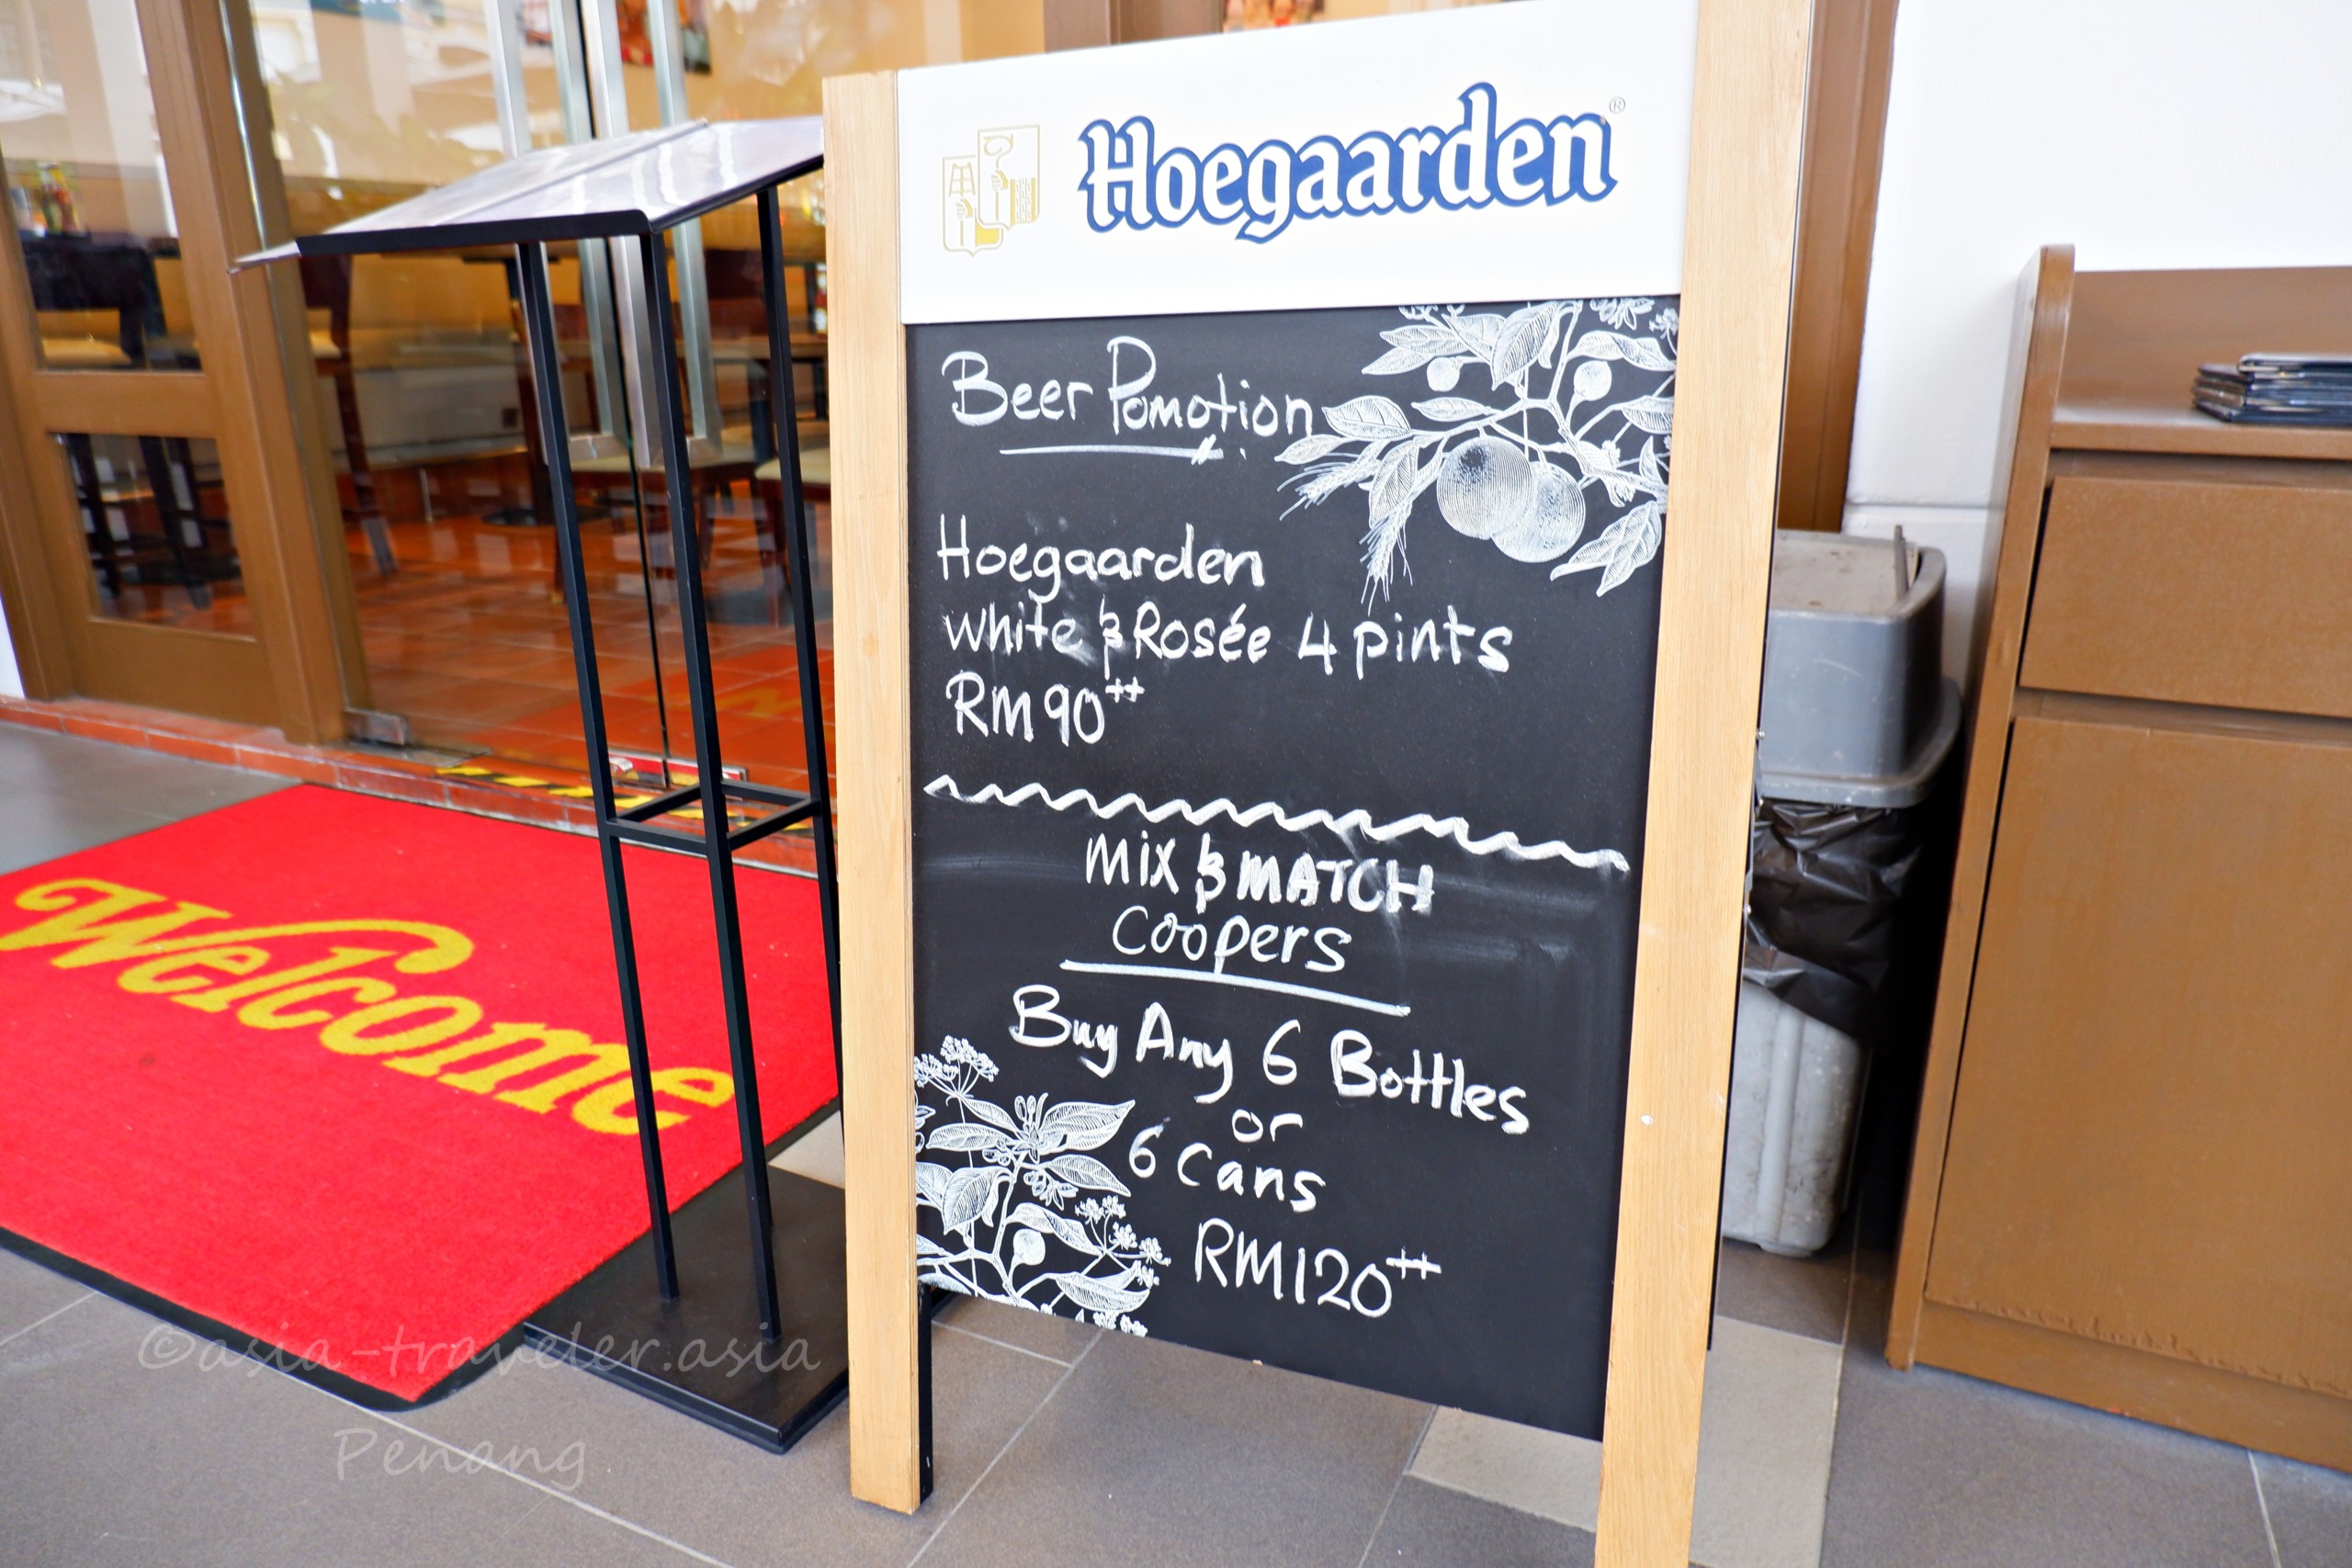 Hoegaarden®
Beer Pomotion
Hoegaarden
white & Rosée 4 pints
RM 90++
MIX & MATCH
Coopers
Buy Any 6 Bottles
or
6 Cans
RM120++
Welcome
©asia-traveler.asia
Penang